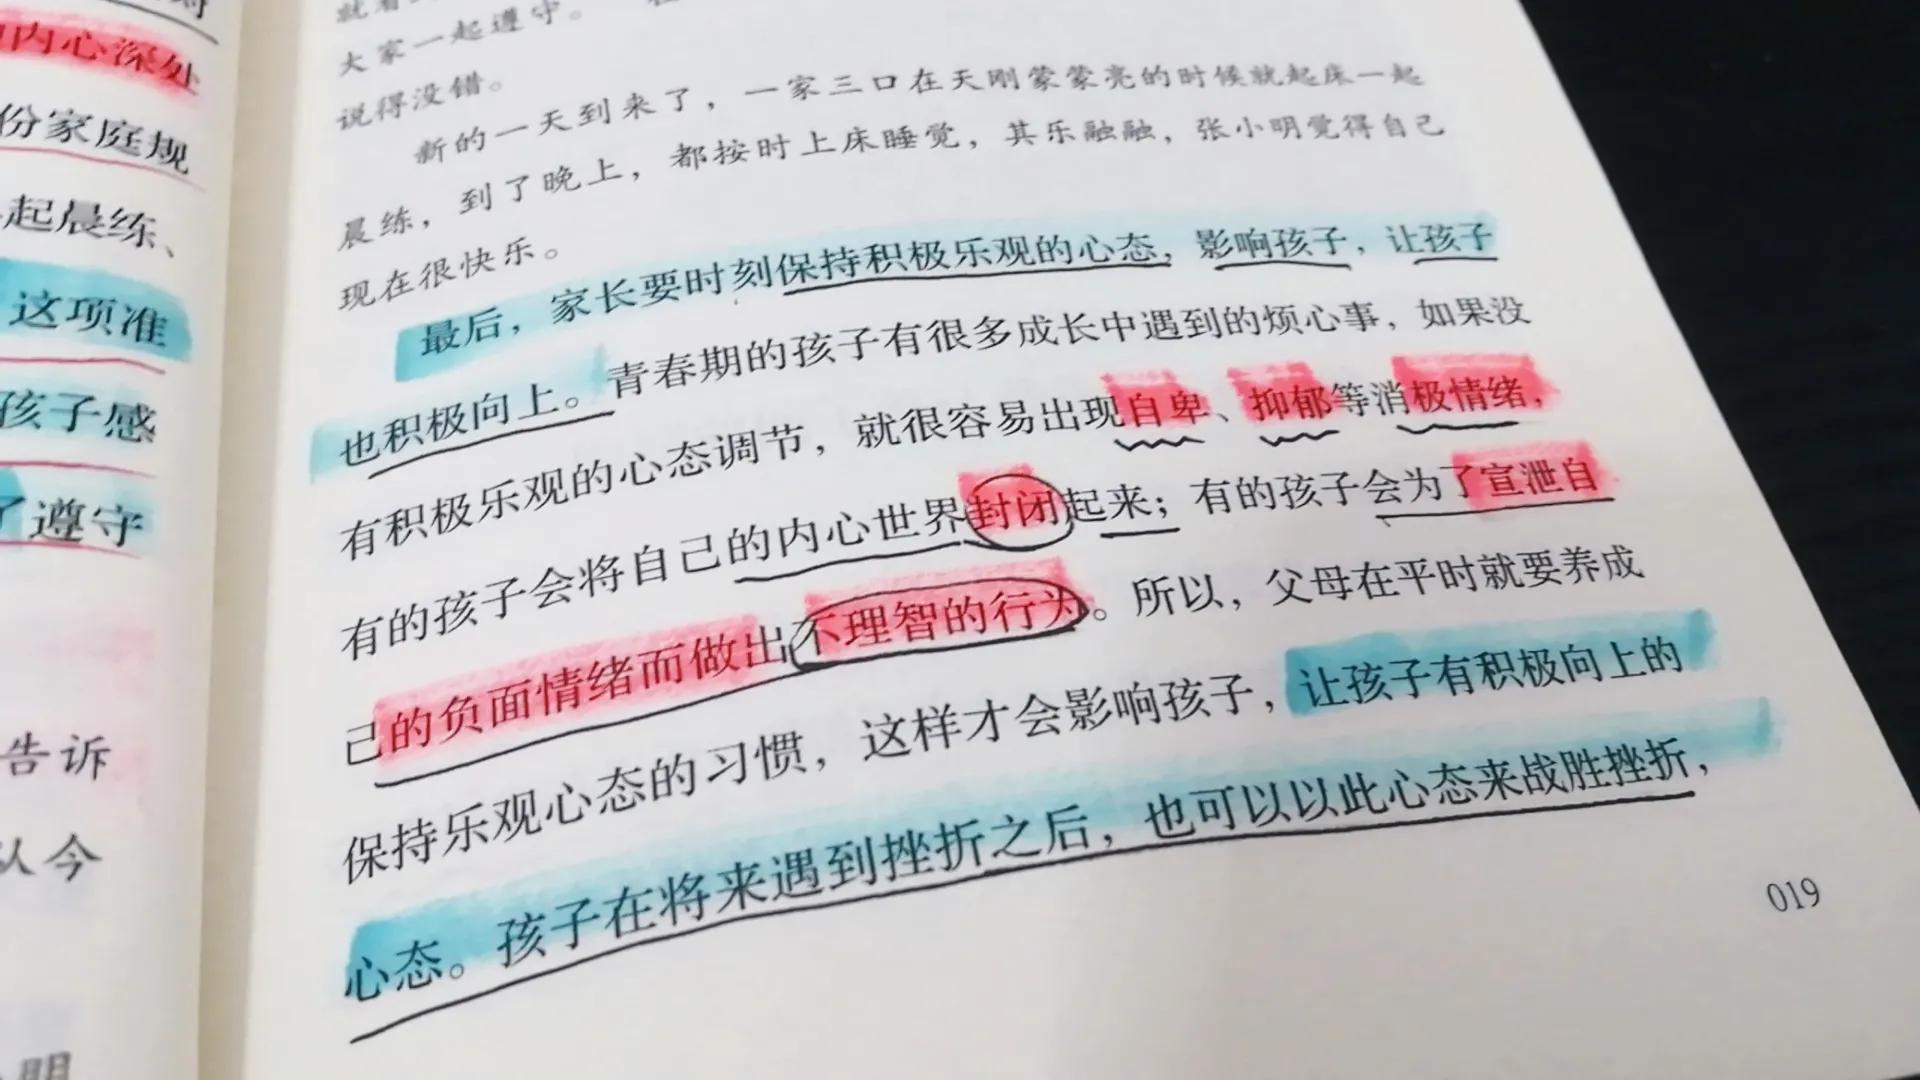 内心深处
份家庭规
起晨练、
这项准
孩子感
了遵守
告诉
从今
明
大家一起遵守。
说得没错。
新的一天到来了，一家三口在天刚蒙蒙亮的时候就起床一起
晨练，到了晚上，都按时上床睡觉，其乐融融，张小明觉得自己
现在很快乐。
最后，家长要时刻保持积极乐观的心态，影响孩子，让孩子
也积极向上。青春期的孩子有很多成长中遇到的烦心事，如果没
有积极乐观的心态调节，就很容易出现自卑、抑郁等消极情绪，
有的孩子会将自己的内心世界封闭起来；有的孩子会为了宣泄自
己的负面情绪而做出不理智的行为。所以，父母在平时就要养成
保持乐观心态的习惯，这样才会影响孩子，让孩子有积极向上的
心态。孩子在将来遇到挫折之后，也可以以此心态来战胜挫折，
019